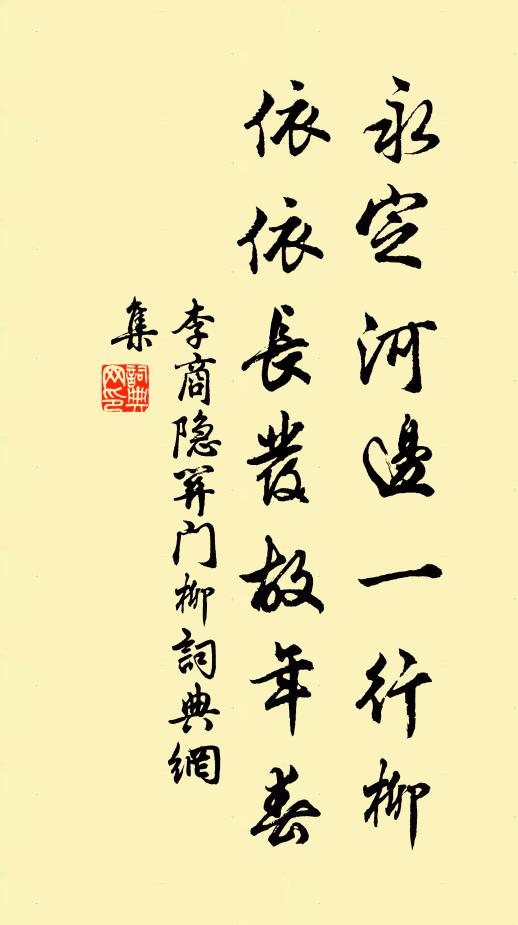 永定河邊一行柳
依依長發故年春
李商隐關门柳詞典網
集
詞典
网印